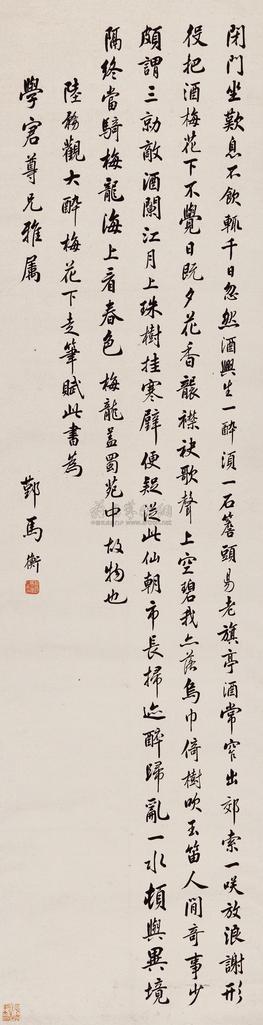 閉門坐歎息不飲輒千日忽然酒興生一醉須一石簷頭易老旗亭酒常窄出郊索一咲放浪謝形
役把酒梅花下不覺日既夕花香襲襟袂歌聲上空碧我亦落烏巾倚樹吹玉笛人間奇事少
頗謂三勍敵酒闌江月上珠樹挂寒璧便疑從此仙朝市長掃迹醉歸亂一水頓與異境
隔終當騎梅龍海上看春色 梅龍蓋蜀苑中故物也
陸務觀大醉梅花下走筆賦此書為
學宭尊兄雅属
鄞馬衡